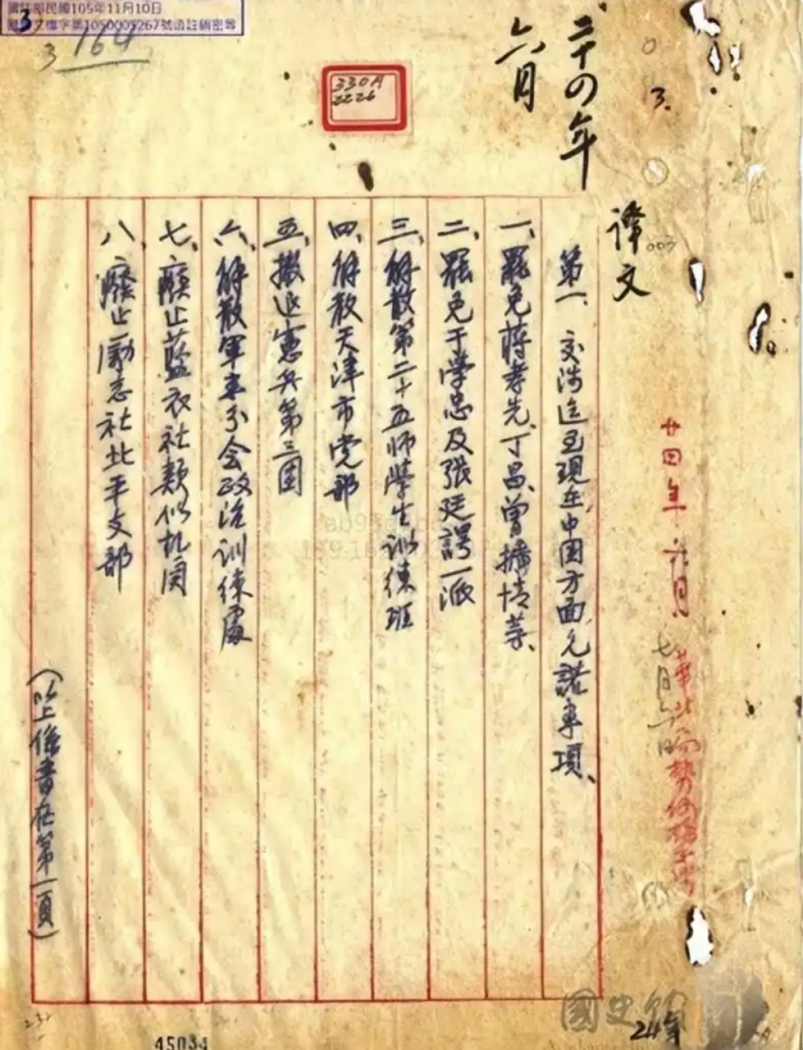 國防部民國105年11月10日
字第1050005267號函註銷密等
3
3 164
330A
2226
二十四年
六月
3.
譯文
003
第一、交涉迄至現在中国方面允諾事項、
一、罷免蔣孝先、丁昌、曾擴情等、
二、罷免于学忠及張廷諤一派
三、解散第二十五师學生训練班
四、解散天津市党部
五、撤退憲兵第三團
六、解散軍事分会政治训練處
七、廢止藍衣社類似机関
八、廢止勵志社北平支部
(以上係書在第一頁)
廿四年六月
七月六日
華北局勢
國史館
24年
45031